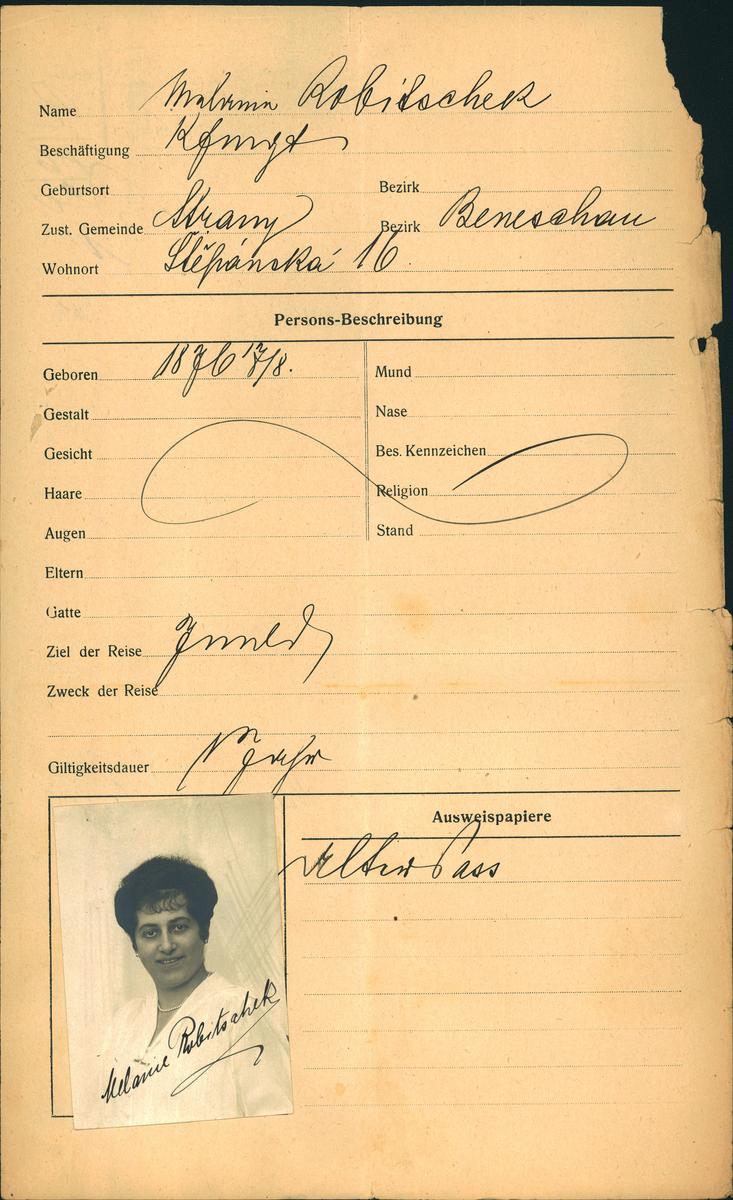 Name Melanie Robitschek
Beschäftigung
Geburtsort Bezirk
Zust. Gemeinde Strany Bezirk Beneschau
Wohnort Štěpánská 16
Persons-Beschreibung
Geboren 1876 17/8.
Mund
Gestalt
Nase
Gesicht
Bes. Kennzeichen
Haare
Religion
Augen
Stand
Eltern
Gatte
Ziel der Reise
Zweck der Reise
Giltigkeitsdauer Jahr
Ausweispapiere
Alter Pass
Melanie Robitschek